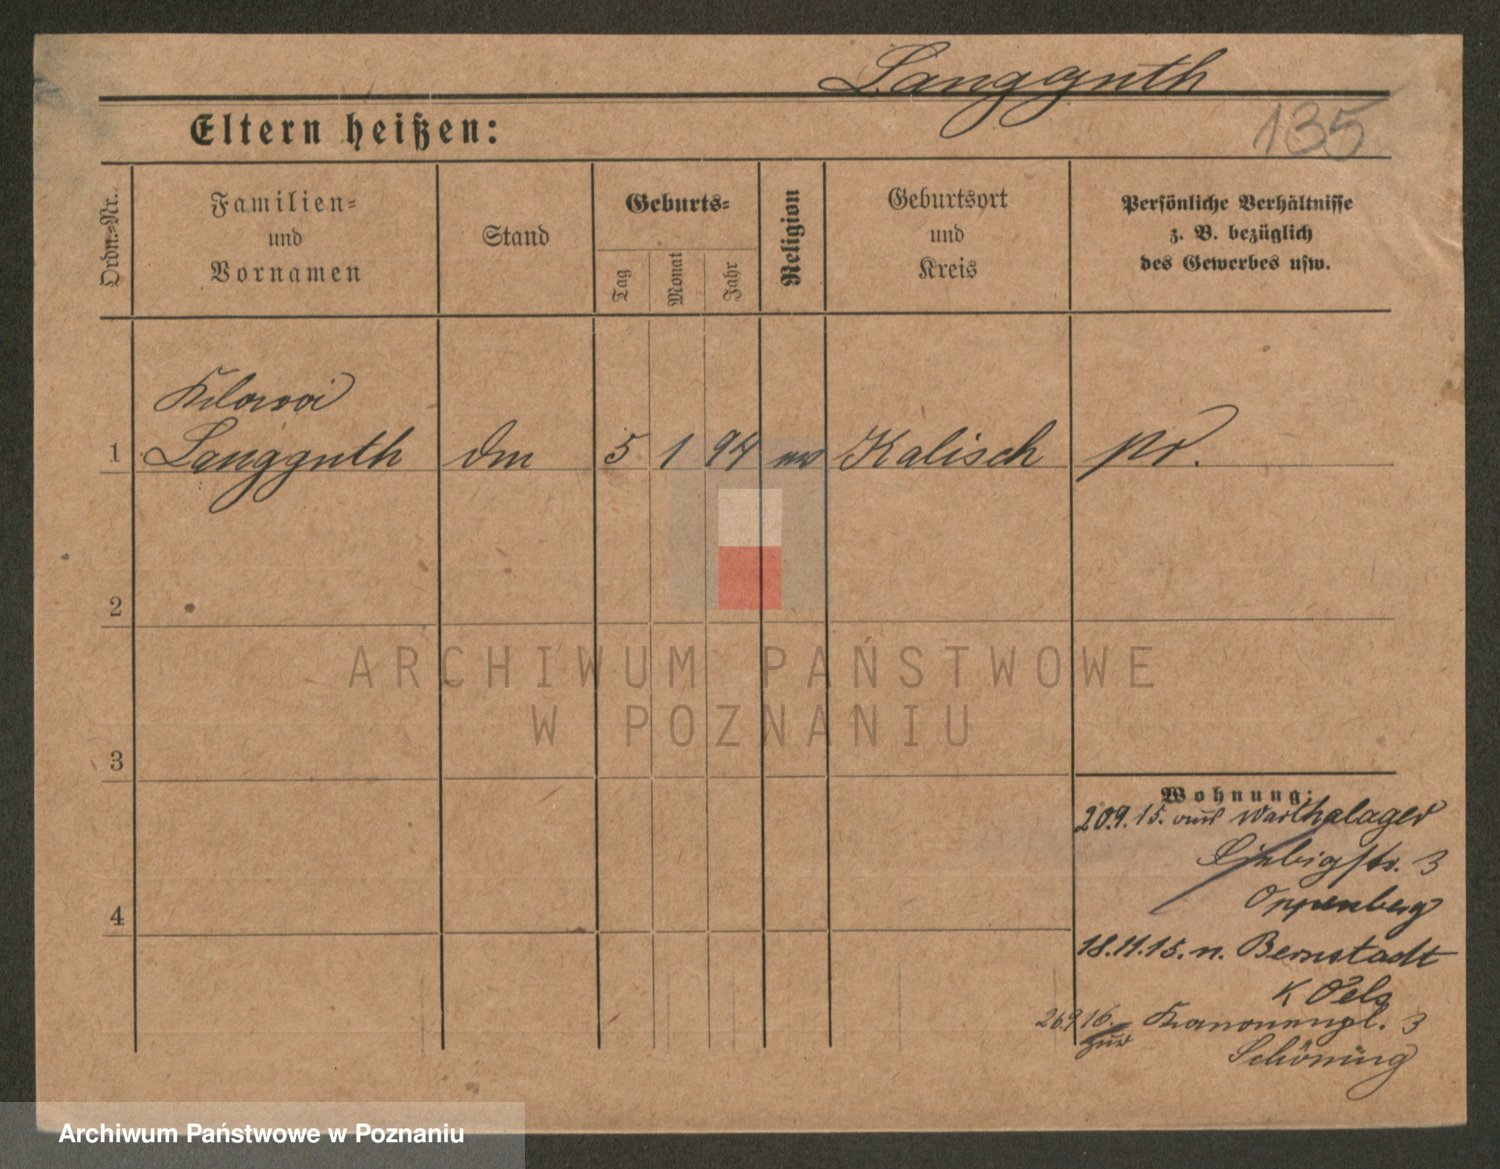 Langguth
135
Eltern heißen:
Ordn.-Nr.
Familien-
und
Vornamen
Stand
Geburts-
Tag
Monat
Jahr
Religion
Geburtsort
und
Kreis
Persönliche Verhältnisse
z. B. bezüglich
des Gewerbes usw.
1
Langguth 5 1 94 Kalisch pr.
2
3
4
ARCHIWUM PAŃSTWOWE
W POZNANIU
Wohnung:
20.9.15. aus Warthalager
str. 3
Oppenberg
18.11.15. n. Bernstadt
K Oels
26.9.16. Kanonenpl. 3
zur
Schöning
Archiwum Państwowe w Poznaniu